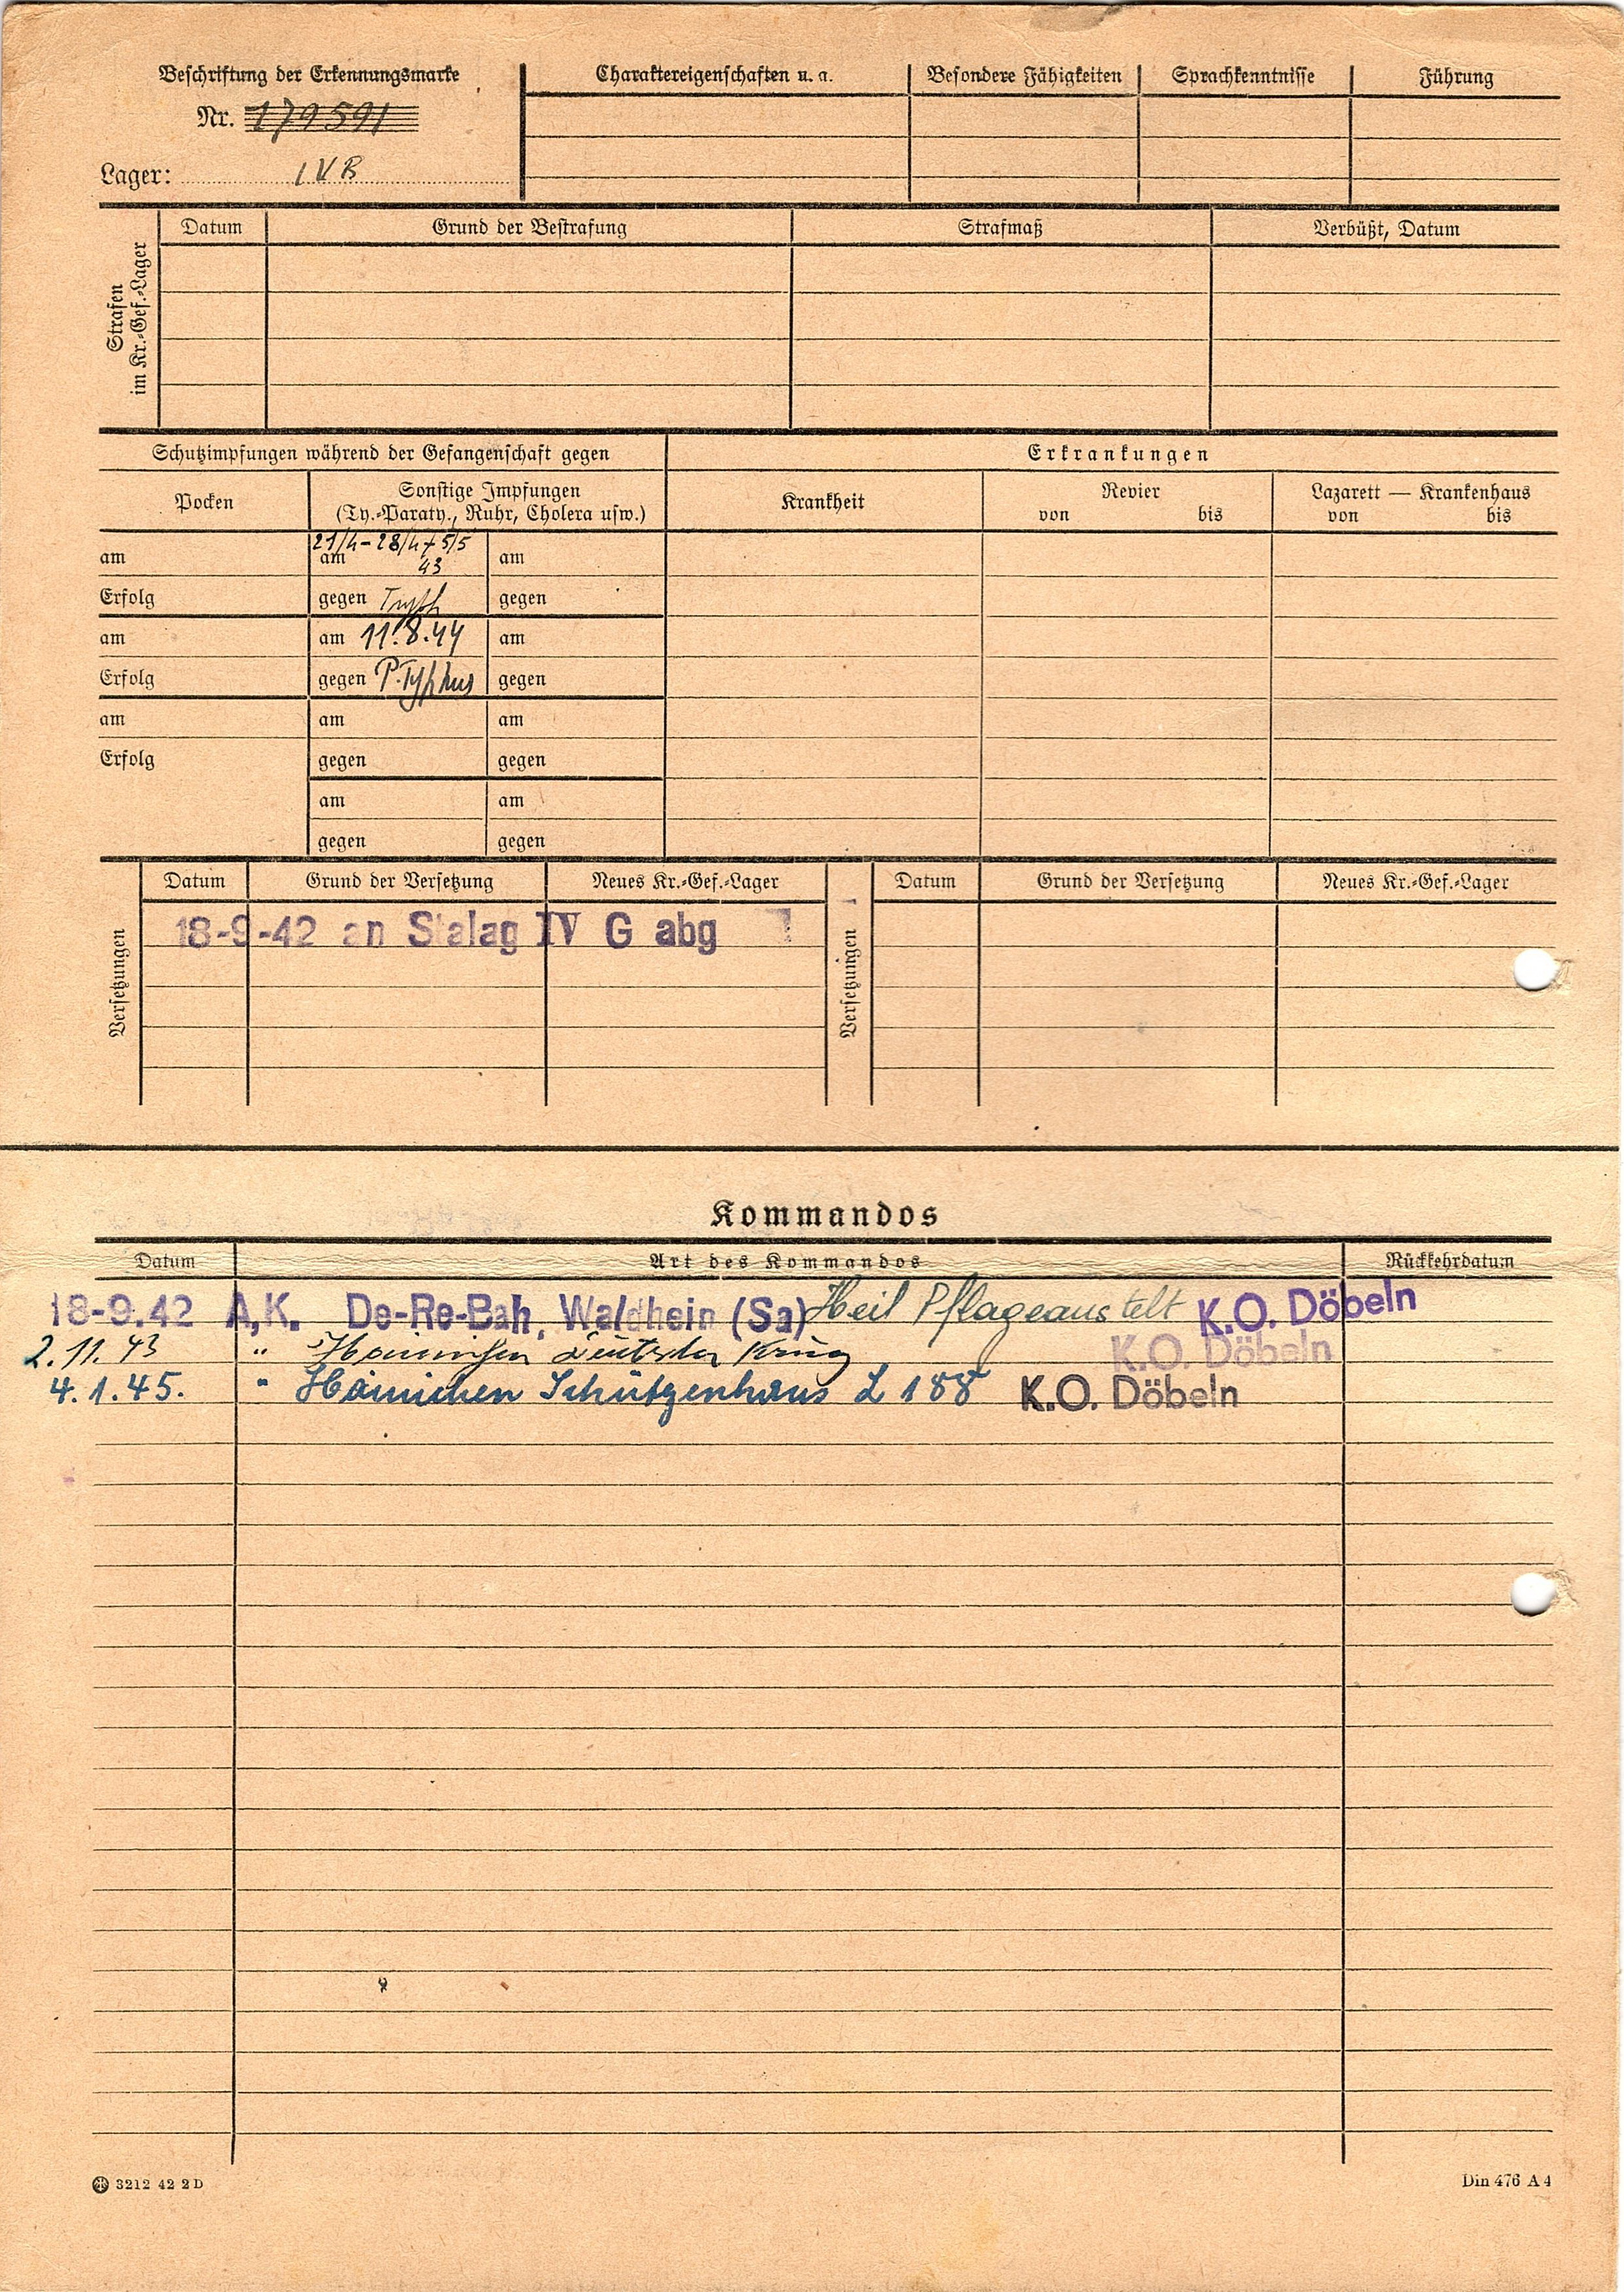 Beschriftung der Erkennungsmarke
Nr. 179591
Lager: IVB
Charaktereigenschaften u. a.
Besondere Fähigkeiten
Sprachkenntnisse
Führung
Strafen
im Kr.-Gef.-Lager
Datum
Grund der Bestrafung
Strafmaß
Verbüßt, Datum
Schutzimpfungen während der Gefangenschaft gegen
Erkrankungen
Pocken
Sonstige Impfungen
(Ty.-Paraty., Ruhr, Cholera usw.)
Krankheit
Revier
von bis
Lazarett — Krankenhaus
von bis
am
21/4-28/4+5/5
am 43
am
Erfolg
gegen
gegen
am
am 11.8.44
am
Erfolg
gegen P.Typhus
gegen
am
am
am
Erfolg
gegen
gegen
am
am
gegen
gegen
Versetzungen
Datum
Grund der Versetzung
Neues Kr.-Gef.-Lager
Versetzungen
Datum
Grund der Versetzung
Neues Kr.-Gef.-Lager
18-9-42 an Stalag IV G abg
Kommandos
Datum
Art des Kommandos
Rückkehrdatum
18-9.42 A.K. De-Re-Bah. Waldhein (Sa) Heil Pflageanstelt K.O. Döbeln
2.11.43 " Hainichen Deutscher Krug K.O. Döbeln
4.1.45. " Hainichen Schützenhaus L 188 K.O. Döbeln
3212 42 2 D
Din 476 A 4